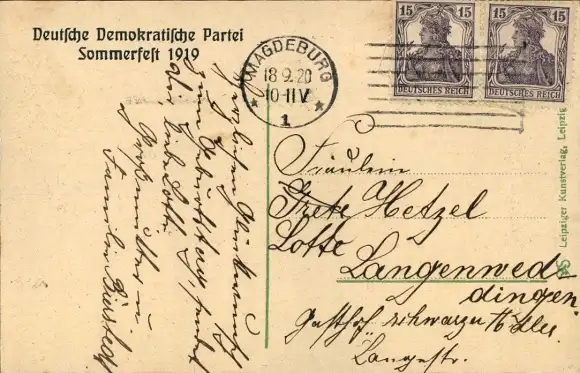 Deutsche Demokratische Partei
Sommerfest 1919
MAGDEBURG
18.9.20
10-11 V
* 1 *
15 15
DEUTSCHES REICH
15 15
DEUTSCHES REICH
Herzlichen Glückwunsch
zum Geburtstag, sendet
dir, liebe Lotte
Großmutter u.
Familie
Fräulein
Grete Hetzel
Lotte
Langenwed-
dingen
Gasthof schwarzer
Langestr.
Leipziger Kunstverlag, Leipzig